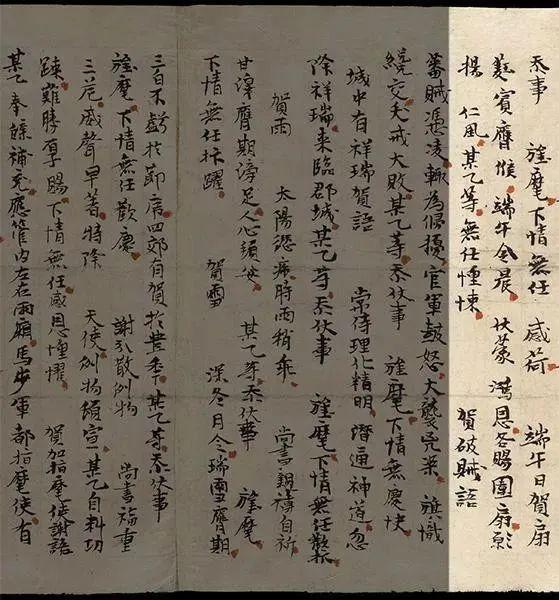 忝事 旌麾下情無任 感荷 端午日賀扇
蕤賓膺候端午令晨 伏蒙 鴻恩各賜團扇願
揚 仁風某乙等無任惶悚 賀破賊語
蕃賊憑凌輙為侵擾官軍鼓怒大襲兇渠 旌識
纔交大敗某乙等忝伏事 旌麾下情無慶快
城中有祥瑞賀語 常侍理化精明潛通神道忽
降祥瑞来臨郡城某乙等忝伏事 旌麾下情無任歡抃
賀雨 太陽恣時雨稍乖 尚書親禱自祈
甘澤膺期滂足人心頓安 某乙等忝伏事 旌麾
下情無任抃躍 賀雪 深冬月令瑞雪膺期
三白不虧於節序四郊有賀於豊年某乙等忝伏事
旌麾下情無任歡慶 謝散例物 尚書福重
三危威聲早著特降 天使例物傾宣某乙自料功
踈難勝厚賜下情無任感恩惶懼 賀加指麾使謝語
某乙奉牒補充應管內左右兩廂馬步軍都指麾使有